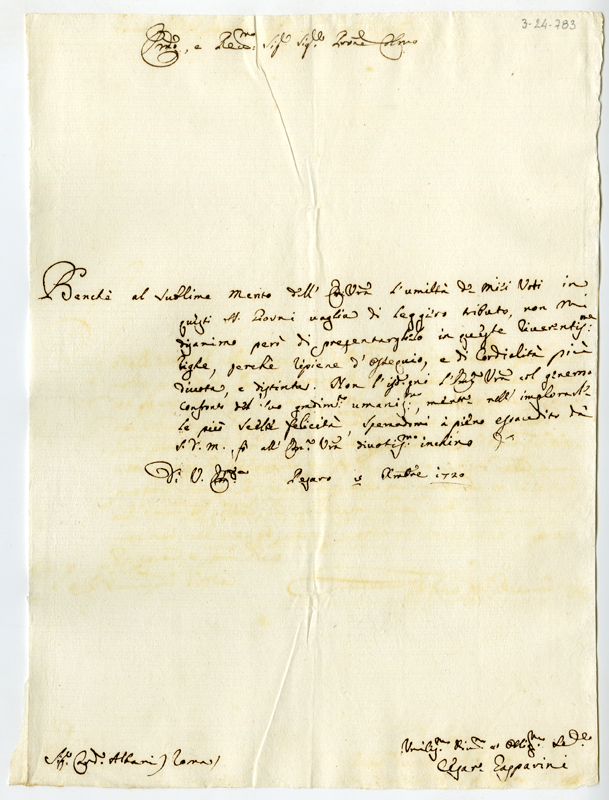 3-24-783
Em.mo, e Re.mo Sig.r Sig.r Pron.e Col.mo
Benchè al sublime merito dell' Em.za V.ra l'umiltà de' miei Voti in
questi SS. Giorni vaglia di leggiero tributo, non mi
disanimo però di presentarglielo in queste riverentiss.me
righe, perchè ripiene d'ossequio, e di Cordialità più
divota, e distinta. Non l'isdegni l'Em.za V.ra col generoso
conforto del suo gradim.to umaniss.mo, mentre nell' implorarle
le più scelte felicità, sperandomi a pieno essaudito da
S. D. M., fò all' Em.za V.ra divotiss.mo inchino
Di V. Em.za Pesaro Xmbre 1720
Sig.r Card. Albani / Roma /
Umiliss.mo Div.mo et Obblig.mo Se.re
Cesare Zapparini